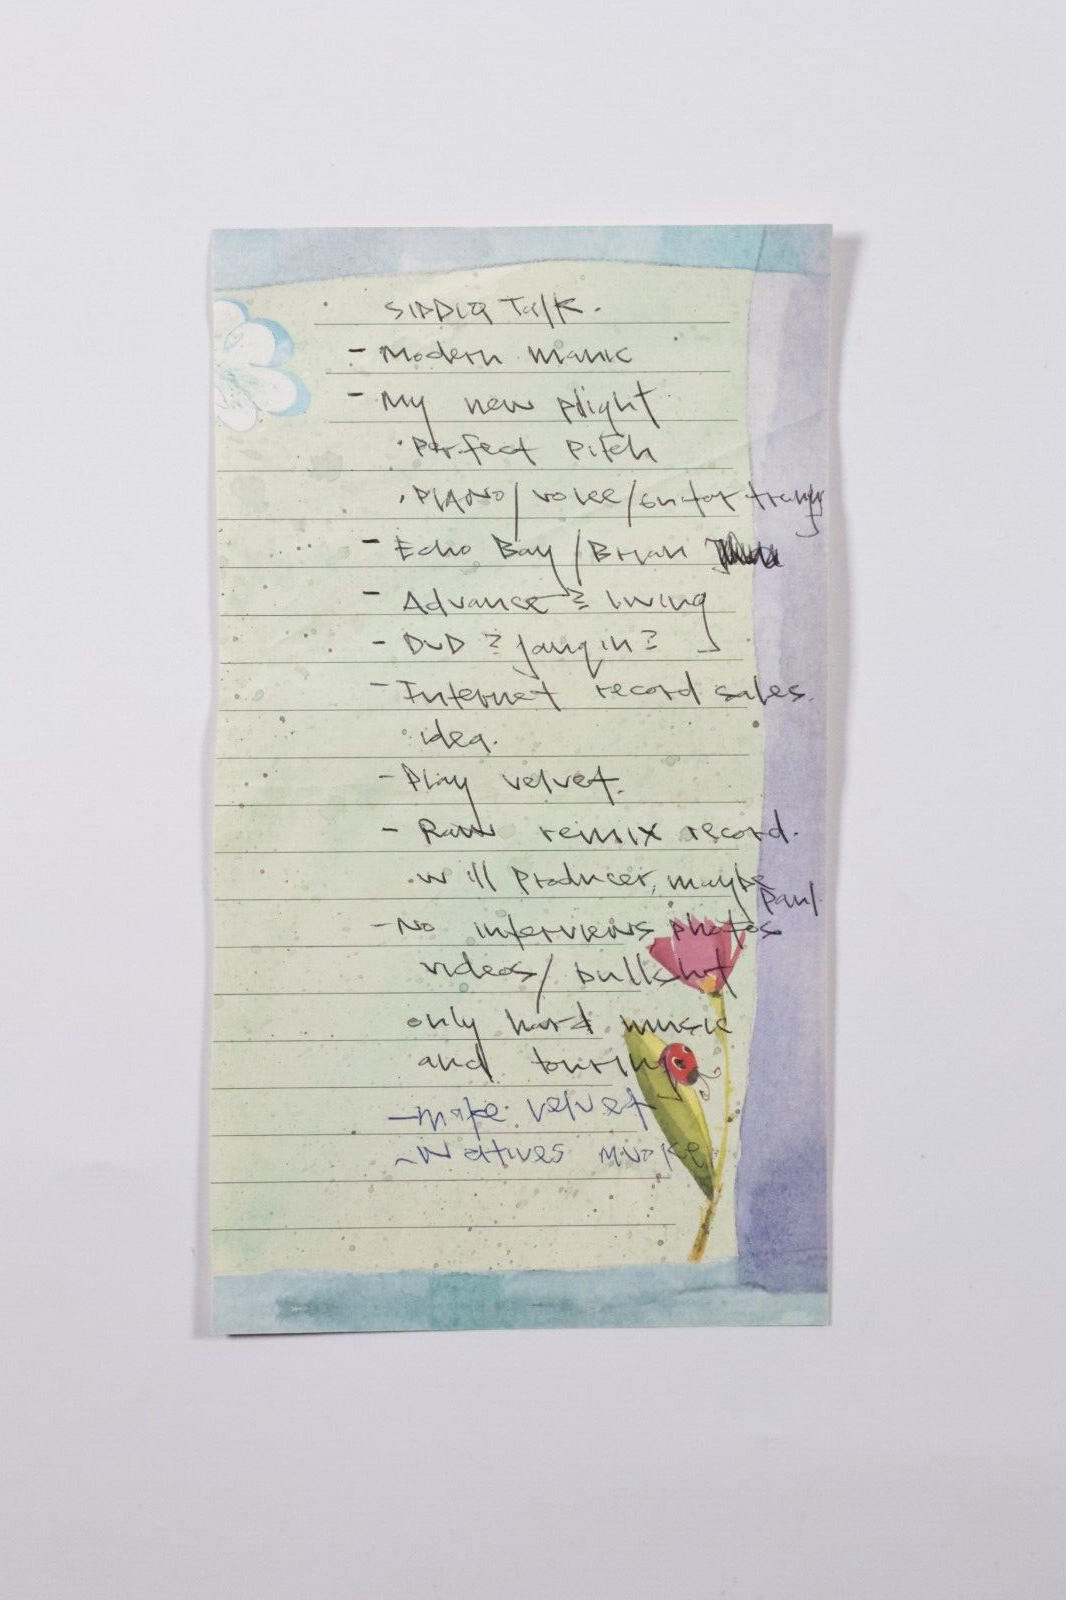 SIDDIQ Talk.
- Modern manic
- My new plight
· Perfect Pitch
· PIANO/voice/Guitar
- Echo Bay/Brian
- Advance & living
- DVD ? ?
- Internet record sales.
idea.
- Play velvet.
- Raw remix record.
· will producer, maybe
Paul.
- No interviews photos
videos/bullshit
only hard music
and touring
- Make velvet
- Natives